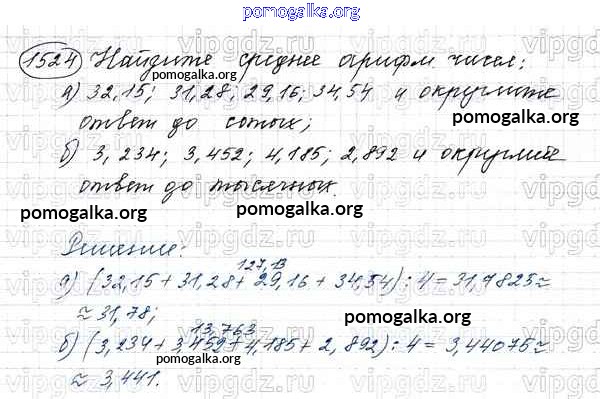 pomogalka.org
1524 Найдите среднее арифм. чисел:
pomogalka.org
а) 32,15; 31,28; 29,16; 34,54 и округлите
pomogalka.org
ответ до сотых;
б) 3,234; 3,452; 4,185; 2,892 и округлите
ответ до тысячных.
pomogalka.org
pomogalka.org
Решение:
127,13
а) (32,15 + 31,28 + 29,16 + 34,54) : 4 = 31,7825 ≈
≈ 31,78;
pomogalka.org
13,763
б) (3,234 + 3,452 + 4,185 + 2,892) : 4 = 3,44075 ≈
≈ 3,441.
pomogalka.org